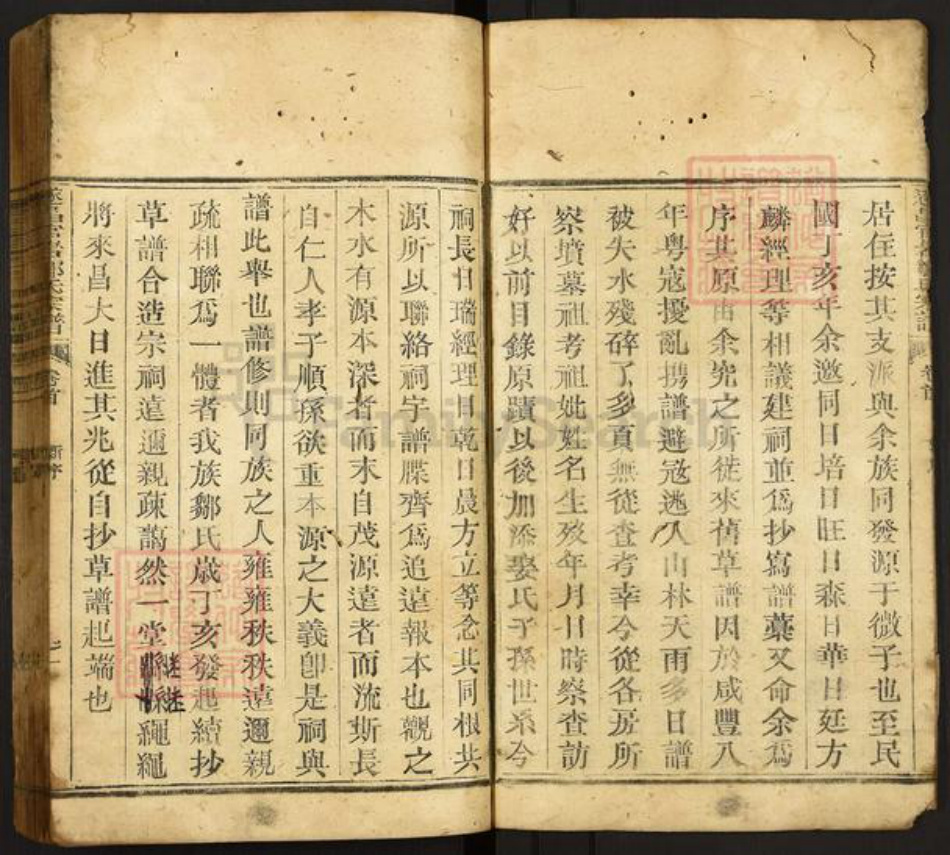 居住按其支派與余族同發源于微子也至民
國丁亥年余邀同日培日旺日森日華日廷方
麟經理等相議建祠並爲抄寫譜藁又命余爲
序其原由余究之所從來舊草譜因於咸豐八
年粤寇擾亂攜譜避寇逃入山林天雨多日譜
被失水殘碎了多頁無從查考幸今從各房所
察墳墓祖考祖妣姓名生歿年月日時察查訪
好以前目錄原蹟以後加添娶氏子孫世系今
祠長日瑞經理日乾日晨方立等念其同根共
源所以聯絡祠宇譜牒齊爲追遠報本也觀之
木水有源本深者而末自茂源遠者而流斯長
自仁人孝子順孫欲重本源之大義卽是祠與
譜此舉也譜修則同族之人雍雍秩秩遠邇親
疏相聯爲一體者我族鄒氏歲丁亥發起續抄
草譜合造宗祠遠邇親疎藹然一堂繼繼繩繩
將來昌大日進其兆從自抄草譜起端也
鄒氏宗譜
卷首
新序
FamilySearch